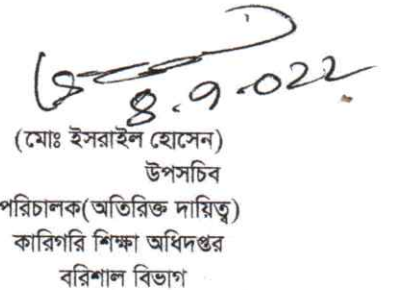 8.9.022
(মোঃ ইসরাইল হোসেন)
উপসচিব
পরিচালক(অতিরিক্ত দায়িত্ব)
কারিগরি শিক্ষা অধিদপ্তর
বরিশাল বিভাগ